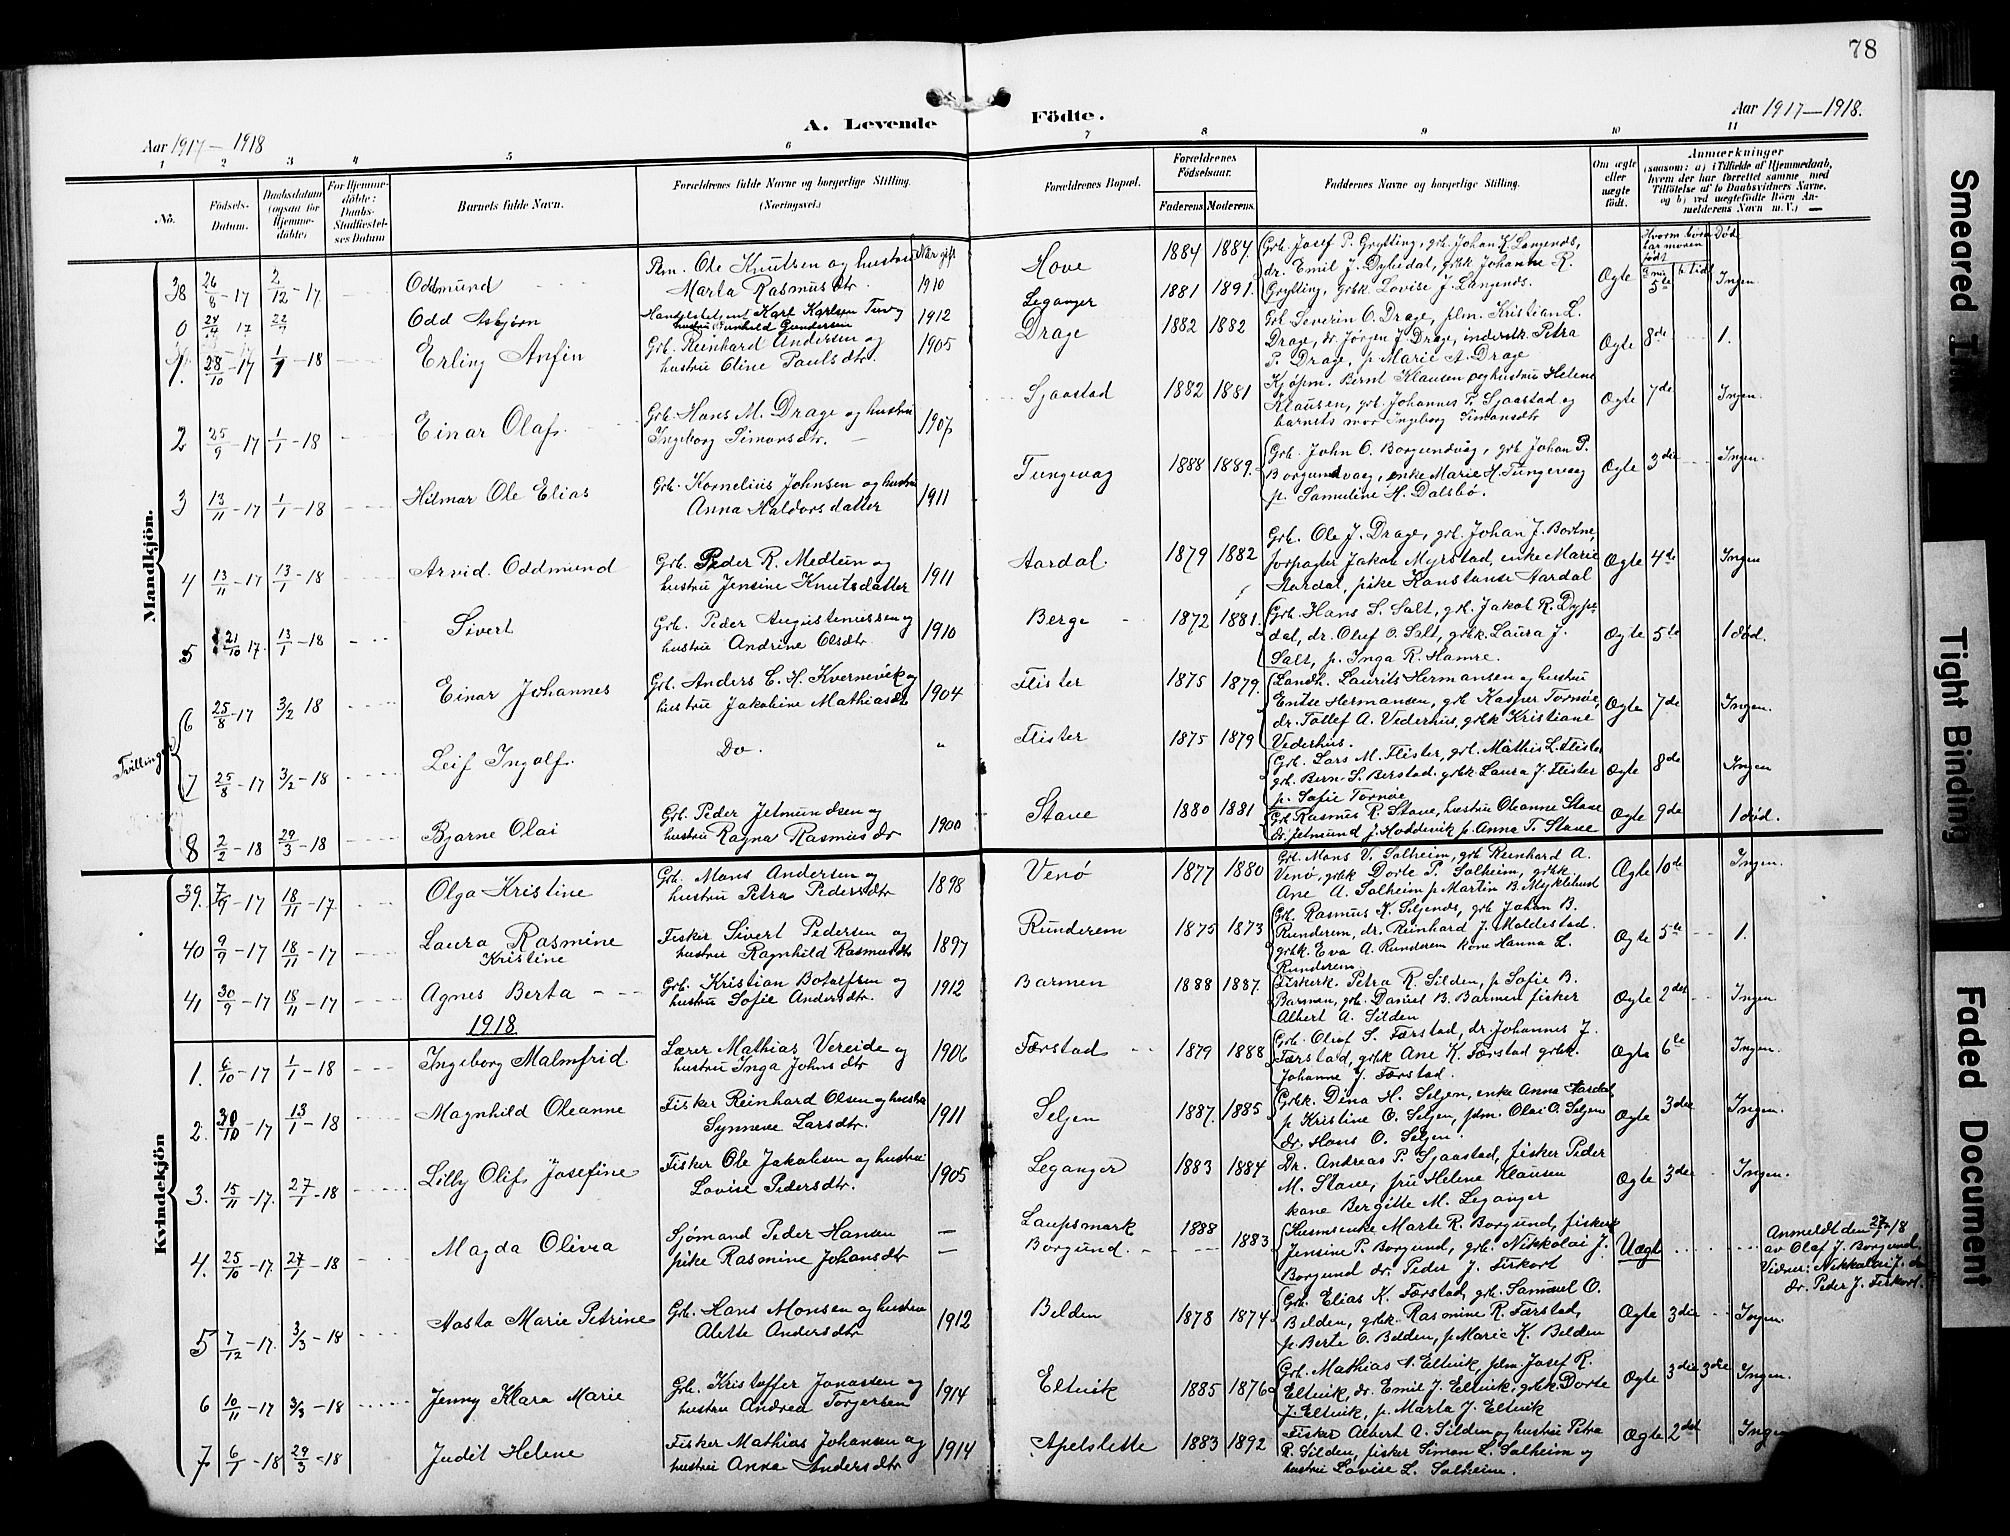 78
A. Levende Födte.
Aar 1917 — 1918
Aar 1917 — 1918.
1 2 3 4 5 6 7 8 9 10 11
No.
Födsels-Datum.
Daabsdatum (ogsaa for Hjemme-döbte)
For Hjemme-döbte: Daabs-Stadfæstel-ses Datum
Barnets fulde Navn.
Forældrenes fulde Navne og borgerlige Stilling. (Næringsvei.)
Forældrenes Bopæl.
Forældrenes Födselsaar.
Faderens. Moderens.
Faddernes Navne og borgerlige Stilling.
Om ægte eller uægte födt.
Anmærkninger
(saasom: a) i Tilfælde af Hjemmedaab, hvem der har forrettet samme, med Tilföielse af to Daabsvidners Navne, og b) ved uægtefödte Börn An-melderens Navn m. V.) —
Mandkjön.
38 26/8 - 17 2/12 - 17 Oddmund Ole Knutsen og hustru Marta Rasmusdtr. 1910 Hove 1884 1884
Grb. Josef P. Grytting, grb. Johan K. Langenes,
dr. Emil J. Dybedal, grbk Johanne R.
Grytting, grbk. Lovise J. Langenes. Ægte 5te Ingen
Odd Asbjørn 1912 Leganger 1881 1891
1. 28/10 - 17 1/1 - 18 Erling Anfin Grb. Reinhard Andersen og hustru Oline Paulsdtr. 1905 Drage 1882 1882
Grb Severin O. Drage, plm. Kristian L.
Drage, dr. Jørgen J. Drage, Petra
P. Drage, p. Marie A. Drage Ægte 8de 1.
2 25/9 - 17 1/1 - 18 Einar Olaf Grb. Hans M. Drage og hustru Ingeborg Simonsdtr. 1907 Sjaastad 1882 1881
Kjøpm. Bernt Klausen og hustru Helene
Klausen, grb. Johannes P. Sjaastad og
barnets mor Ingeborg Simonsdtr Ægte 7de Ingen
3 13/11 - 17 1/1 - 18 Hilmar Ole Elias Grb. Kornelius Johnsen og hustru Anna Haldorsdatter 1911 Tungevaag 1888 1889.
Grb. John O. Borgundvåg, grb Johan P.
Borgundvaag, enke Marie H. Tungevaag
p. Samuline H. Dalsbø. Ægte 3die Ingen.
4 13/11 - 17 13/1 - 18 Arvid Oddmund Grb. Peder R. Medtun og hustru Jensine Knutsdatter 1911 Aardal. 1879 1882
Grb. Ole J. Drage, grb. Johan J. Bortne,
forpagter Jakob Myrstad, enke Marie
Aardal, pike Konstanse Aardal Ægte 4de Ingen
5 21/10 17. 13/1 - 18 Sivert Grb. Peder Augustinussen og hustru Andrine Olsdtr. 1910 Berge 1872 1881.
Grb. Hans S. Salt, grb. Jakob R. Dype-
dal, dr. Oluf O. Salt, grbk. Laura J.
Salt, p. Inga R. Hamre. Ægte 5te 1 død.
Tvillinger
6 25/8 - 17 3/2 18 Einar Johannes Grb. Anders C. H. Kvernevik og hustru Jakobine Mathiasdtr 1904 Flister 1875 1879.
Landh. Laurits Hermansen og hustru
Entse Hermansen, grb. Kasper Tornøe,
dr. Tollef A. Vederhus, grbk Kristiane
Vederhus. Ægte 7de Ingen.
7 25/8 - 17 3/2 - 18 Leif Ingolf. Do. " Flister 1875 1879
Grb. Lars M. Flister, grb. Mathis L. Flister
grb. Bern. S. Berstad. grbk Laura J. Flister
p. Sofie Tornøe Ægte 8de Ingen
8 2/2 - 18 29/3 - 18 Bjarne Olai Grb. Peder Jetmundsen og hustru Ragna Rasmusdtr 1900 Stave 1880 1881
Grb Rasmus R. Stave, hustru Oleanne Stave
dr. Jetmund J. Hoddevik p. Anna T. Stave Ægte 9de 1 død.
Kvindekjön
39. 7/9 - 17 18/11 - 17 Olga Kristine Grb. Mons Andersen og hustru Petra Pedersdtr 1898 Venø 1877 1880
Grb. Mons V. Salheim, grb Reinhard A.
Venø, grbk Dorte P. Salheim, grbk.
Ane A. Salheim p Martin B. Myklebust Ægte 10de Ingen.
40 9/9 - 17 18/11 - 17 Laura Rasmine Kristine Fisker Sivert Pedersen og hustru Ragnhild Rasmusdtr 1897 Runderem 1875 1873
Grb. Rasmus K. Seljenes, grb Johan B.
Runderem, dr. Reinhard J. Moldestad.
grbk. Eva A. Runderem kone Hanna L.
Runderem. Ægte 5te 1.
41 30/9 - 17 18/11 - 17 Agnes Berta Grb. Kristian Botolfsen og hustru Sofie Andersdtr. 1912 Barmen 1888 1887.
Fiskerk. Petra R. Silden, p Sofie B.
Barmen, grb. Daniel B. Barmen fisker
Albert A. Silden Ægte 2det Ingen
1918.
1. 6/10 - 17 1/1 - 18 Ingeborg Malmfrid. Lærer Mathias Vereide og hustru Inga Johnsdtr 1906 Færstad 1879 1888
Grb. Oluf S. Færstad, dr. Johannes J.
Færstad, grbk Ane K. Færstad grbk.
Johanne J. Færstad. Ægte 6te Ingen.
2. 30/10 - 17 13/1 - 18 Magnhild Oleanne Fisker Reinhard Olsen og hustru Synneve Larsdtr. 1911 Seljen 1887. 1885
Grbk. Dina H. Seljen, enke Anna Aardal
p Kristine O. Seljen, plm. Olai O. Seljen
dr. Hans O. Seljen. Ægte 3die Ingen.
3. 15/11 - 17. 27/1 - 18 Lilly Olif Josefine Fisker Ole Jakobsen og hustru Lovise Pedersdtr. 1905 Leganger 1883 1884
Dr. Andreas P. Sjaastad, fisker Peder
M. Stave, fru Helene Klausen
kone Bergitte M. Leganger Ægte 3die Ingen.
4. 25/10 - 17 27/1 - 18 Magda Olivea Sjømand Peder Hansen — pike Rasmine Johansdtr — Laupsmark Borgund. 1888 1883
Husmsenke Marte R. Borgund, fiskerk
Jensine P. Borgund, grb. Nikkolai J.
Borgund dr. Peder J. Fiskort Uægte
Anmeldt den 27/1 18
av Olaf J. Borgund.
Vidner: Nikkolai J. do
dr. Peder J. Fiskort.
5 7/12 - 17. 3/3 - 18 Aasta Marie Petrine Grb. Hans Monsen og hustru Alette Andersdtr 1912 Belden 1878 1874
Grb. Elias K. Færstad, grb. Samuel O.
Belden, grbk. Rasmine R. Færstad,
p. Berte O. Belden, p Marie K. Belden Ægte 3die Ingen.
6 10/11 - 17 3/3 - 18 Jenny Klara Marie Grb. Kristoffer Jonassen og hustru Andrea Torgersen 1914 Eltvik 1885 1876
Grb. Mathias A. Eltvik, plm. Josef R.
Eltvik, dr. Emil J. Eltvik, grbk. Dorte
J. Eltvik, p. Marta J. Eltvik Ægte 3die 3die Ingen.
7 6/1 - 18 29/3 - 18 Judit Helene Fisker Mathias Johansen og hustru Anna Andersdtr 1914 Apelslette 1883 1892
Fisker Albert A. Silden og hustru Petra
R. Silden, fisker Simon L. Salheim og
hustru Lovise L. Salheim. Ægte 2det Ingen
Smeared Ink
Tight Binding
Faded Document